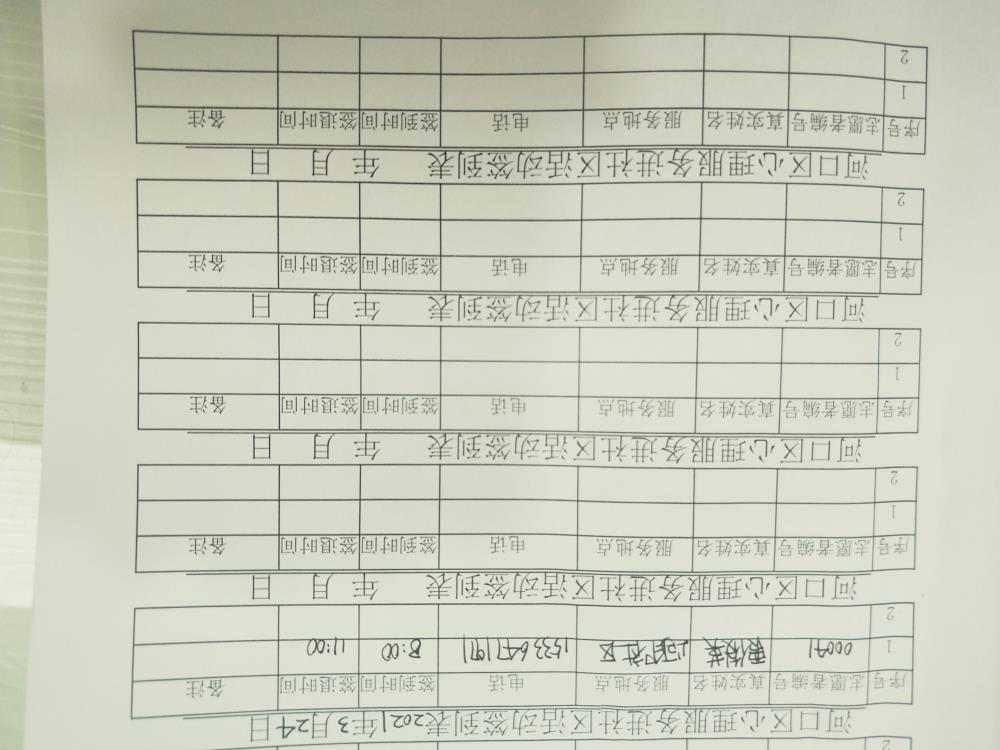 2
河口区心理服务进社区活动签到表2021年3月24日
序号 志愿者编号 真实姓名 服务地点 电话 签到时间 签退时间 备注
1 00041 社区 15336471191 8:00 11:00
2
河口区心理服务进社区活动签到表 年 月 日
序号 志愿者编号 真实姓名 服务地点 电话 签到时间 签退时间 备注
1
2
河口区心理服务进社区活动签到表 年 月 日
序号 志愿者编号 真实姓名 服务地点 电话 签到时间 签退时间 备注
1
2
河口区心理服务进社区活动签到表 年 月 日
序号 志愿者编号 真实姓名 服务地点 电话 签到时间 签退时间 备注
1
2
河口区心理服务进社区活动签到表 年 月 日
序号 志愿者编号 真实姓名 服务地点 电话 签到时间 签退时间 备注
1
2